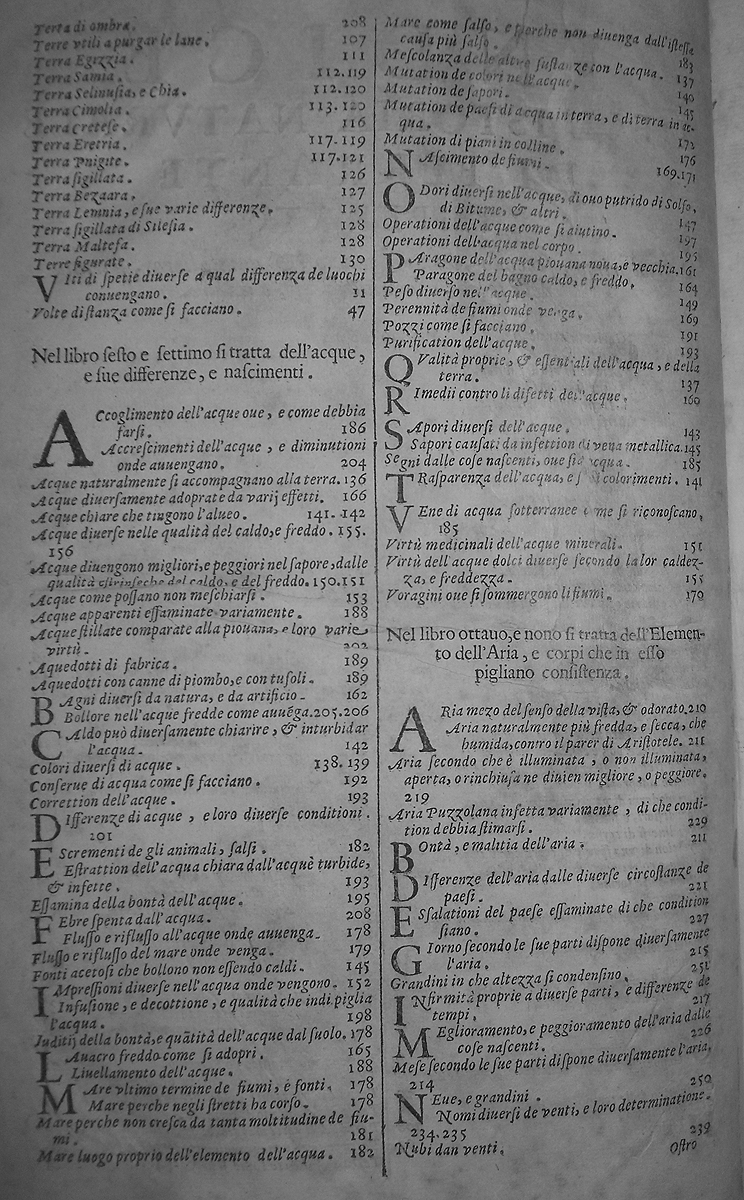 Terra di ombra. 208
Terre vtili a purgar le lane. 107
Terra Egizzia. 111
Terra Samia. 112.119
Terra Selinusia, e Chia. 112.120
Terra Cimolia. 113.120
Terra Cretese. 116
Terra Eretria. 117.119
Terra Pnigite. 117.121
Terra sigillata. 126
Terra Bezaara. 127
Terra Lemnia, e sue varie differenze. 125
Terra sigillata di Slesia. 128
Terra Maltesa. 128
Terre figurate. 130
VIti di spetie diuerse a qual differenza de luochi
conuengano. 11
Volte di stanza come si facciano. 47
Nel libro sesto e settimo si tratta dell'acque,
e sue differenze, e nascimenti.
ACcoglimento dell'acque oue, e come debbia
farsi. 186
Accrescimenti dell'acque, e diminutioni
onde auuengano. 204
Acque naturalmente si accompagnano alla terra. 136
Acque diuersamente adoprate da varij effetti. 166
Acque chiare che tingono l'alueo. 141.142
Acque diuerse nelle qualità del caldo, e freddo. 155.
156
Acque diuengono migliori, e peggiori nel sapore, dalle
qualità estrinseche del caldo, e del freddo. 150.151
Acque come possano non meschiarsi. 153
Acque apparenti essaminate variamente. 188
Acque stillate comparate alla piouana, e loro varie
virtù. 202
Aquedotti di fabrica. 189
Aquedotti con canne di piombo, e con tufoli. 189
BAgni diuersi da natura, e da artificio. 162
Bollore nell'acque fredde come auuēga. 205.206
CAldo può diuersamente chiarire, & inturbidar
l'acqua. 142
Colori diuersi di acque. 138.139
Conserue di acqua come si facciano. 192
Correttion dell'acque. 193
DIfferenze di acque, e loro diuerse conditioni.
201
EScrementi de gli animali, salsi. 182
Estrattion dell'acqua chiara dall'acque turbide,
& infette. 193
Essamina della bontà dell'acque. 195
FEbre spenta dall'acqua. 208
Flusso e riflusso all'acque onde auuenga. 178
Flusso e riflusso del mare onde venga. 179
Fonti acetosi che bollono non essendo caldi. 145
IMpressioni diuerse nell'acqua onde vengono. 152
Infusione, e decottione, e qualità che indi piglia
l'acqua. 198
Iuditij della bontà, e quātità dell'acque dal suolo. 178
LAuacro freddo come si adopri. 165
Liuellamento dell'acque. 188
MAre vltimo termine de fiumi, e fonti. 178
Mare perche negli stretti ha corso. 178
Mare perche non cresca da tanta moltitudine de fiu-
mi. 181
Mare luogo proprio dell'elemento dell'acqua. 182
Mare come salso, e perche non diuenga dall'istessa
causa più salso. 183
Mescolanza delle altre sustanze con l'acqua. 137
Mutation de colori nell'acque. 140
Mutation de sapori. 145
Mutation de paesi di acqua in terra, e di terra in ac-
qua. 172
Mutation di piani in colline. 176
NAscimento de fiumi. 169.171
ODori diuersi nell'acque, di ouo putrido di Solfo,
di Bitume, & altri. 147
Operationi dell'acque come si aiutino. 197
Operationi dell'acqua nel corpo. 195
PAragone dell'acqua piouana noua, e vecchia. 161
Paragone del bagno caldo, e freddo. 164
Peso diuerso nell'acque. 149
Perennità de fiumi onde venga. 169
Pozzi come si facciano. 191
Purification dell'acque. 193
QValità proprie, & essentiali dell'acqua, e della
terra. 137
RImedii contro li difetti dell'acque. 160
SApori diuersi dell'acque. 143
Sapori causati da infettion di vena metallica. 145
Segni dalle cose nascenti, oue sia acqua. 185
TRasparenza dell'acqua, e suoi colorimenti. 141
VEne di acqua sotterranee come si riconoscano,
185
Virtù medicinali dell'acque minerali. 151
Virtù dell'acque dolci diuerse secondo la lor caldez-
za, e freddezza. 155
Voragini oue si sommergono li fiumi. 170
Nel libro ottauo, e nono si tratta dell'Elemen-
to dell'Aria, e corpi che in esso
pigliano consistenza.
ARia mezo del senso della vista, & odorato. 210
Aria naturalmente più fredda, e secca, che
humida, contro il parer di Aristotele. 211
Aria secondo che è illuminata, o non illuminata,
aperta, o rinchiusa ne diuien migliore, o peggiore.
219
Aria Puzzolana infetta variamente, di che condi-
tion debbia stimarsi. 229
BOntà, e malitia dell'aria. 211
DIfferenze dell'aria dalle diuerse circostanze de
paesi. 221
ESsalationi del paese essaminate di che condition
siano. 227
GIorno secondo le sue parti dispone diuersamente
l'aria. 215
Grandini in che altezza si condensino. 251
INfirmità proprie a diuerse parti, e differenze de
tempi. 217
MEglioramento, e peggioramento dell'aria dalle
cose nascenti. 226
Mese secondo le sue parti dispone diuersamente l'aria.
214
NEue, e grandini. 250
Nomi diuersi de venti, e loro determinatione.
234.235
Nubi dan venti. 239
Ostro